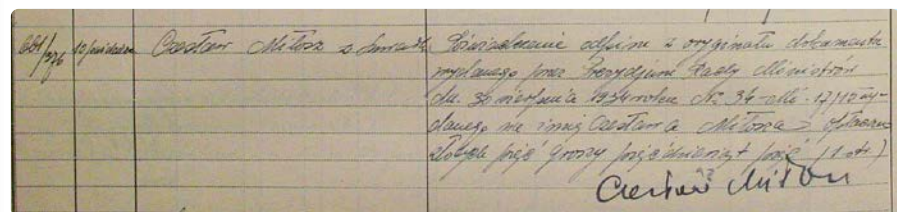 Czesław Miłosz z Suwałk Poświadczenie odpisu z oryginału dokumentu
wydanego przez Prezydjum Rady Ministrów
dn. 30 sierpnia 1934 roku Nr. 34-
na imię Czesława Miłosza
złotych pięć groszy pięćdziesiąt pięć (1 str.)
Czesław Miłosz